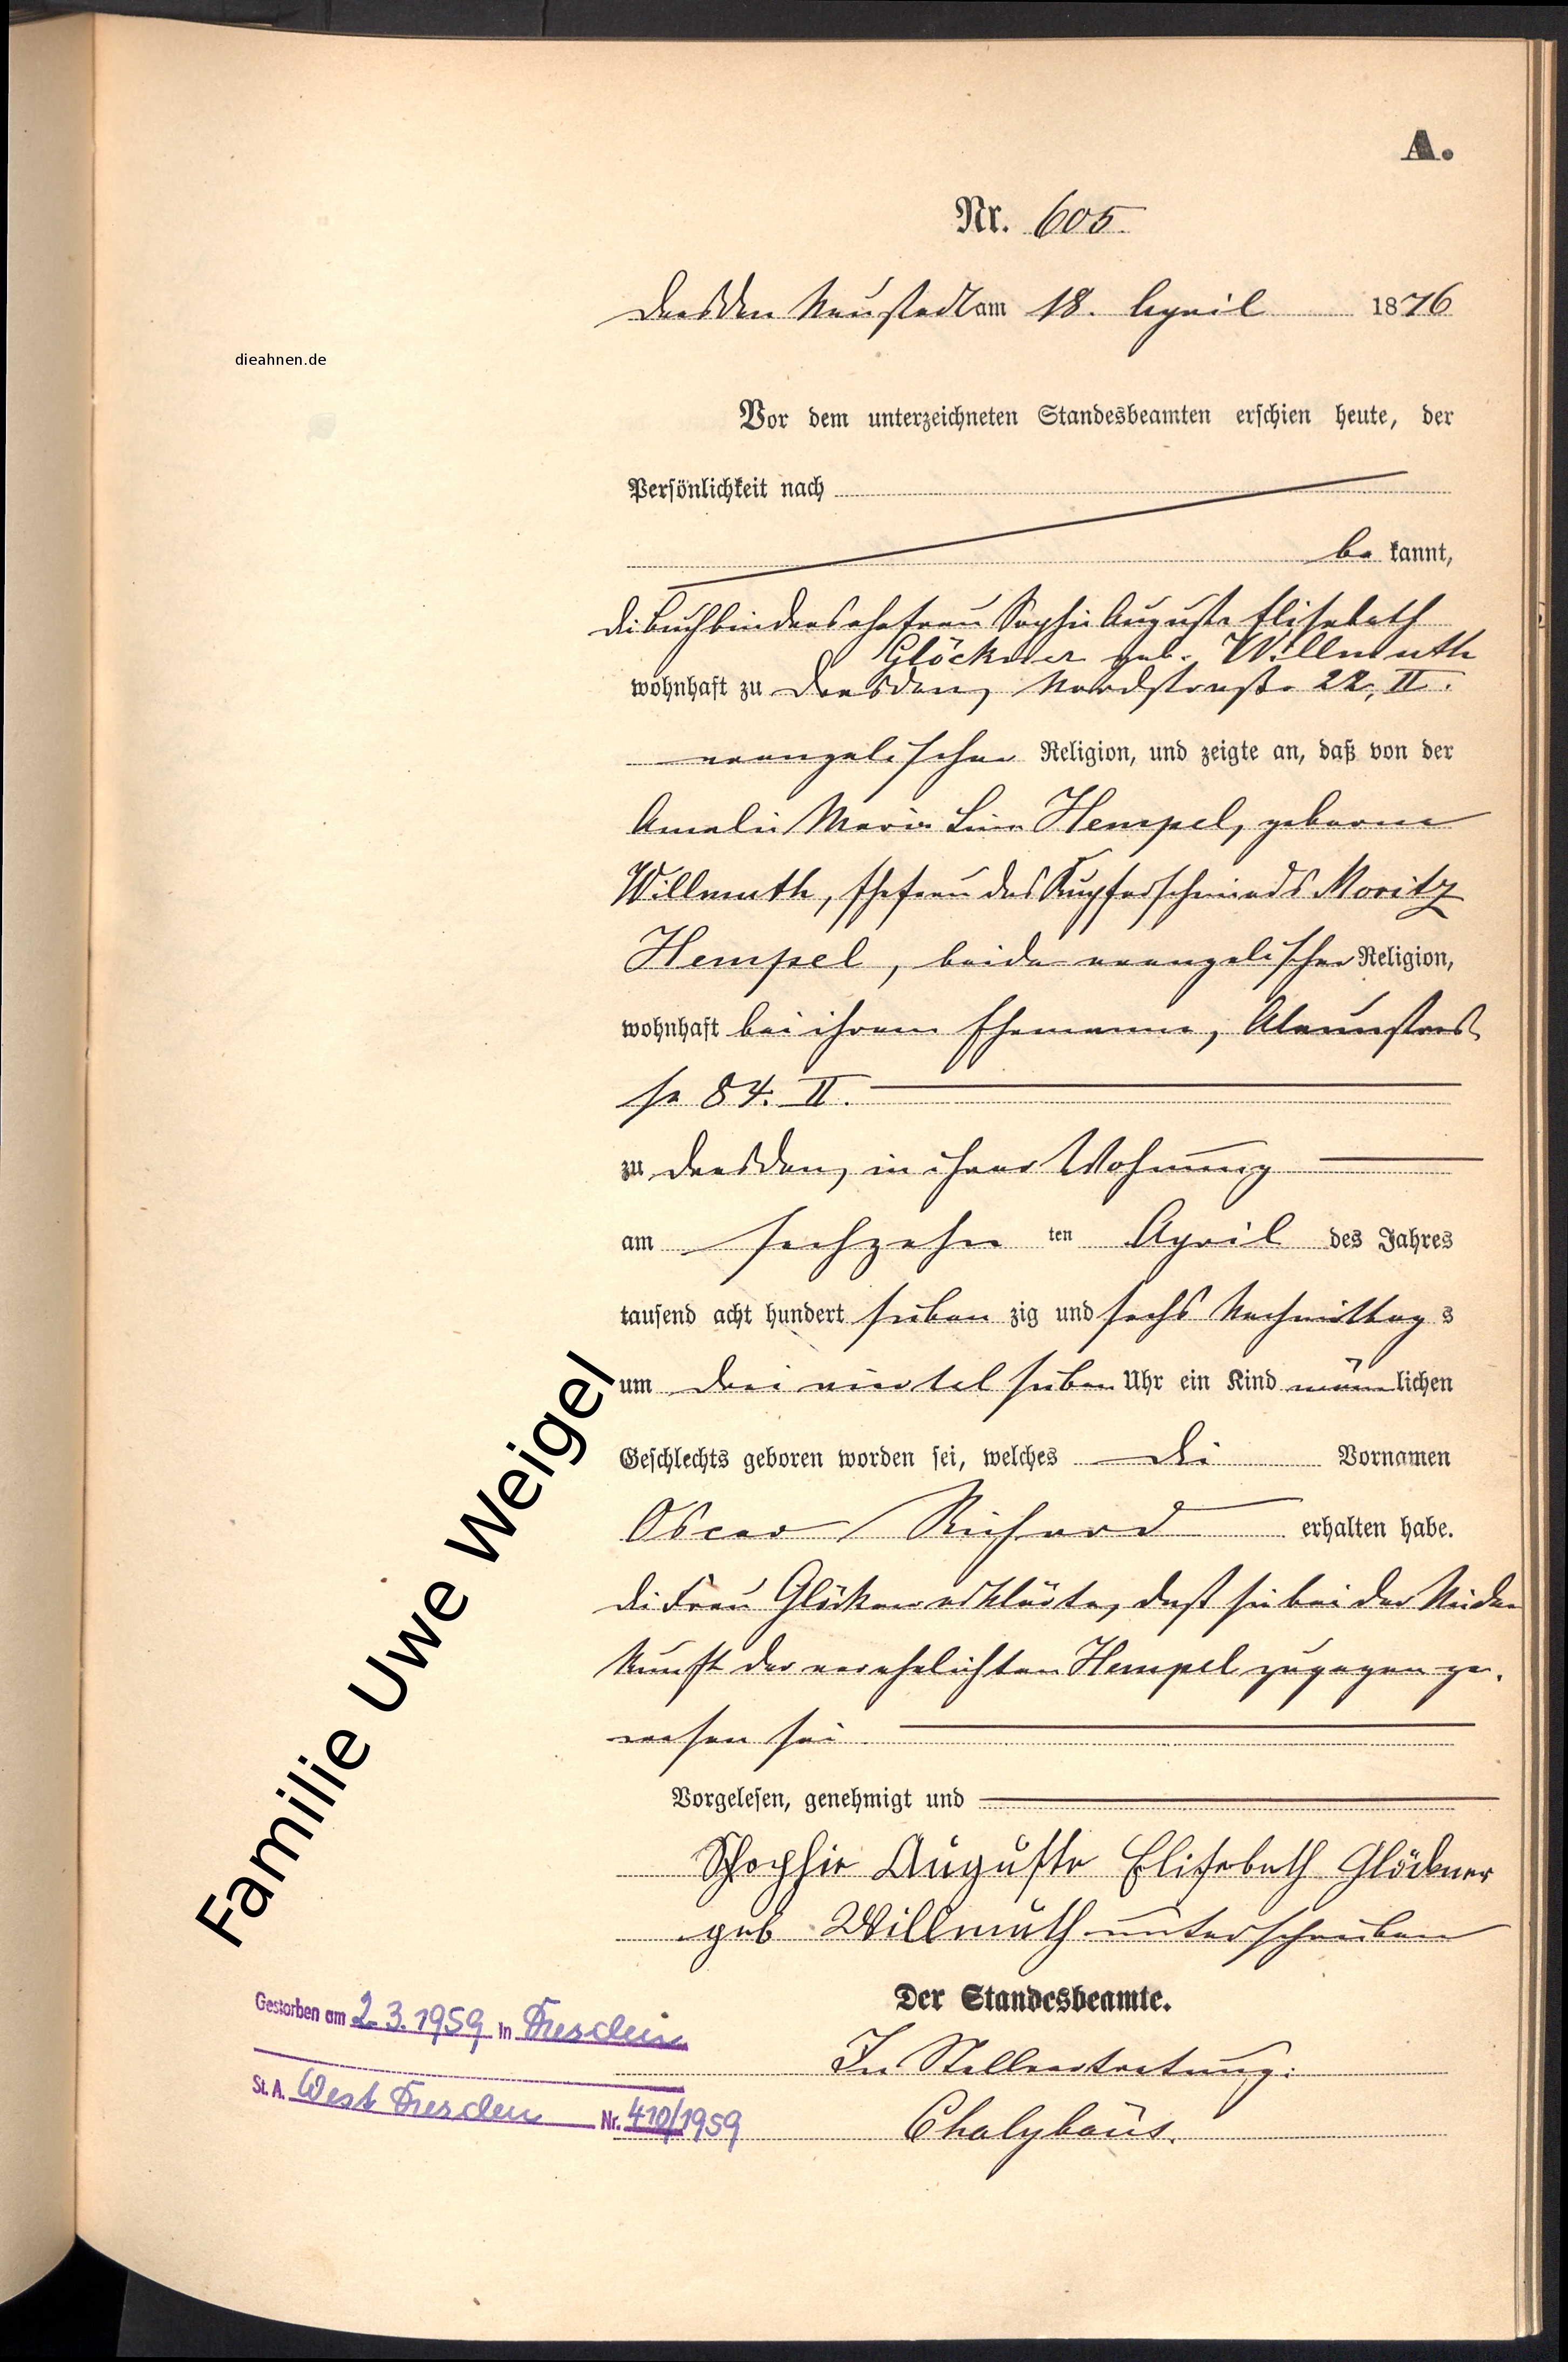 A.
Nr. 605.
Dresden Neustadt am 18. April 1876
dieahnen.de
Vor dem unterzeichneten Standesbeamten erschien heute, der
Persönlichkeit nach
be kannt,
die Buchbindersehefrau Sophie Auguste Elisabeth
Glöckner geb. Willmuth
wohnhaft zu Dresden, Nordstraße 22, II.
evangelischer Religion, und zeigte an, daß von der
Amalie Marie Hempel, geborne
Willmuth, Ehefrau des Kupferschmieds Moritz
Hempel, beide evangelischer Religion,
wohnhaft bei ihrem Ehemanne, Alaunstras
se 84. II.
zu Dresden, in ihrer Wohnung
am sechzehn ten April des Jahres
tausend acht hundert sieben zig und sechs Nachmittag s
um drei viertel sieben Uhr ein Kind männlichen
Geschlechts geboren worden sei, welches die Vornamen
Oscar Richard erhalten habe.
Die Frau Glöckner erklärte, dass sie bei der Nieder
kunft der verehelichten Hempel zugegen ge-
wesen sei
Vorgelesen, genehmigt und
Shophie Auguste Elisebeth Glöckner
geb Willmuth unterschrieben
Der Standesbeamte.
In Stellvertretung:
Chalybäus.
Familie Uwe Weigel
Gestorben am 2.3.1959 in Dresden
St. A. West Dresden Nr. 410/1959